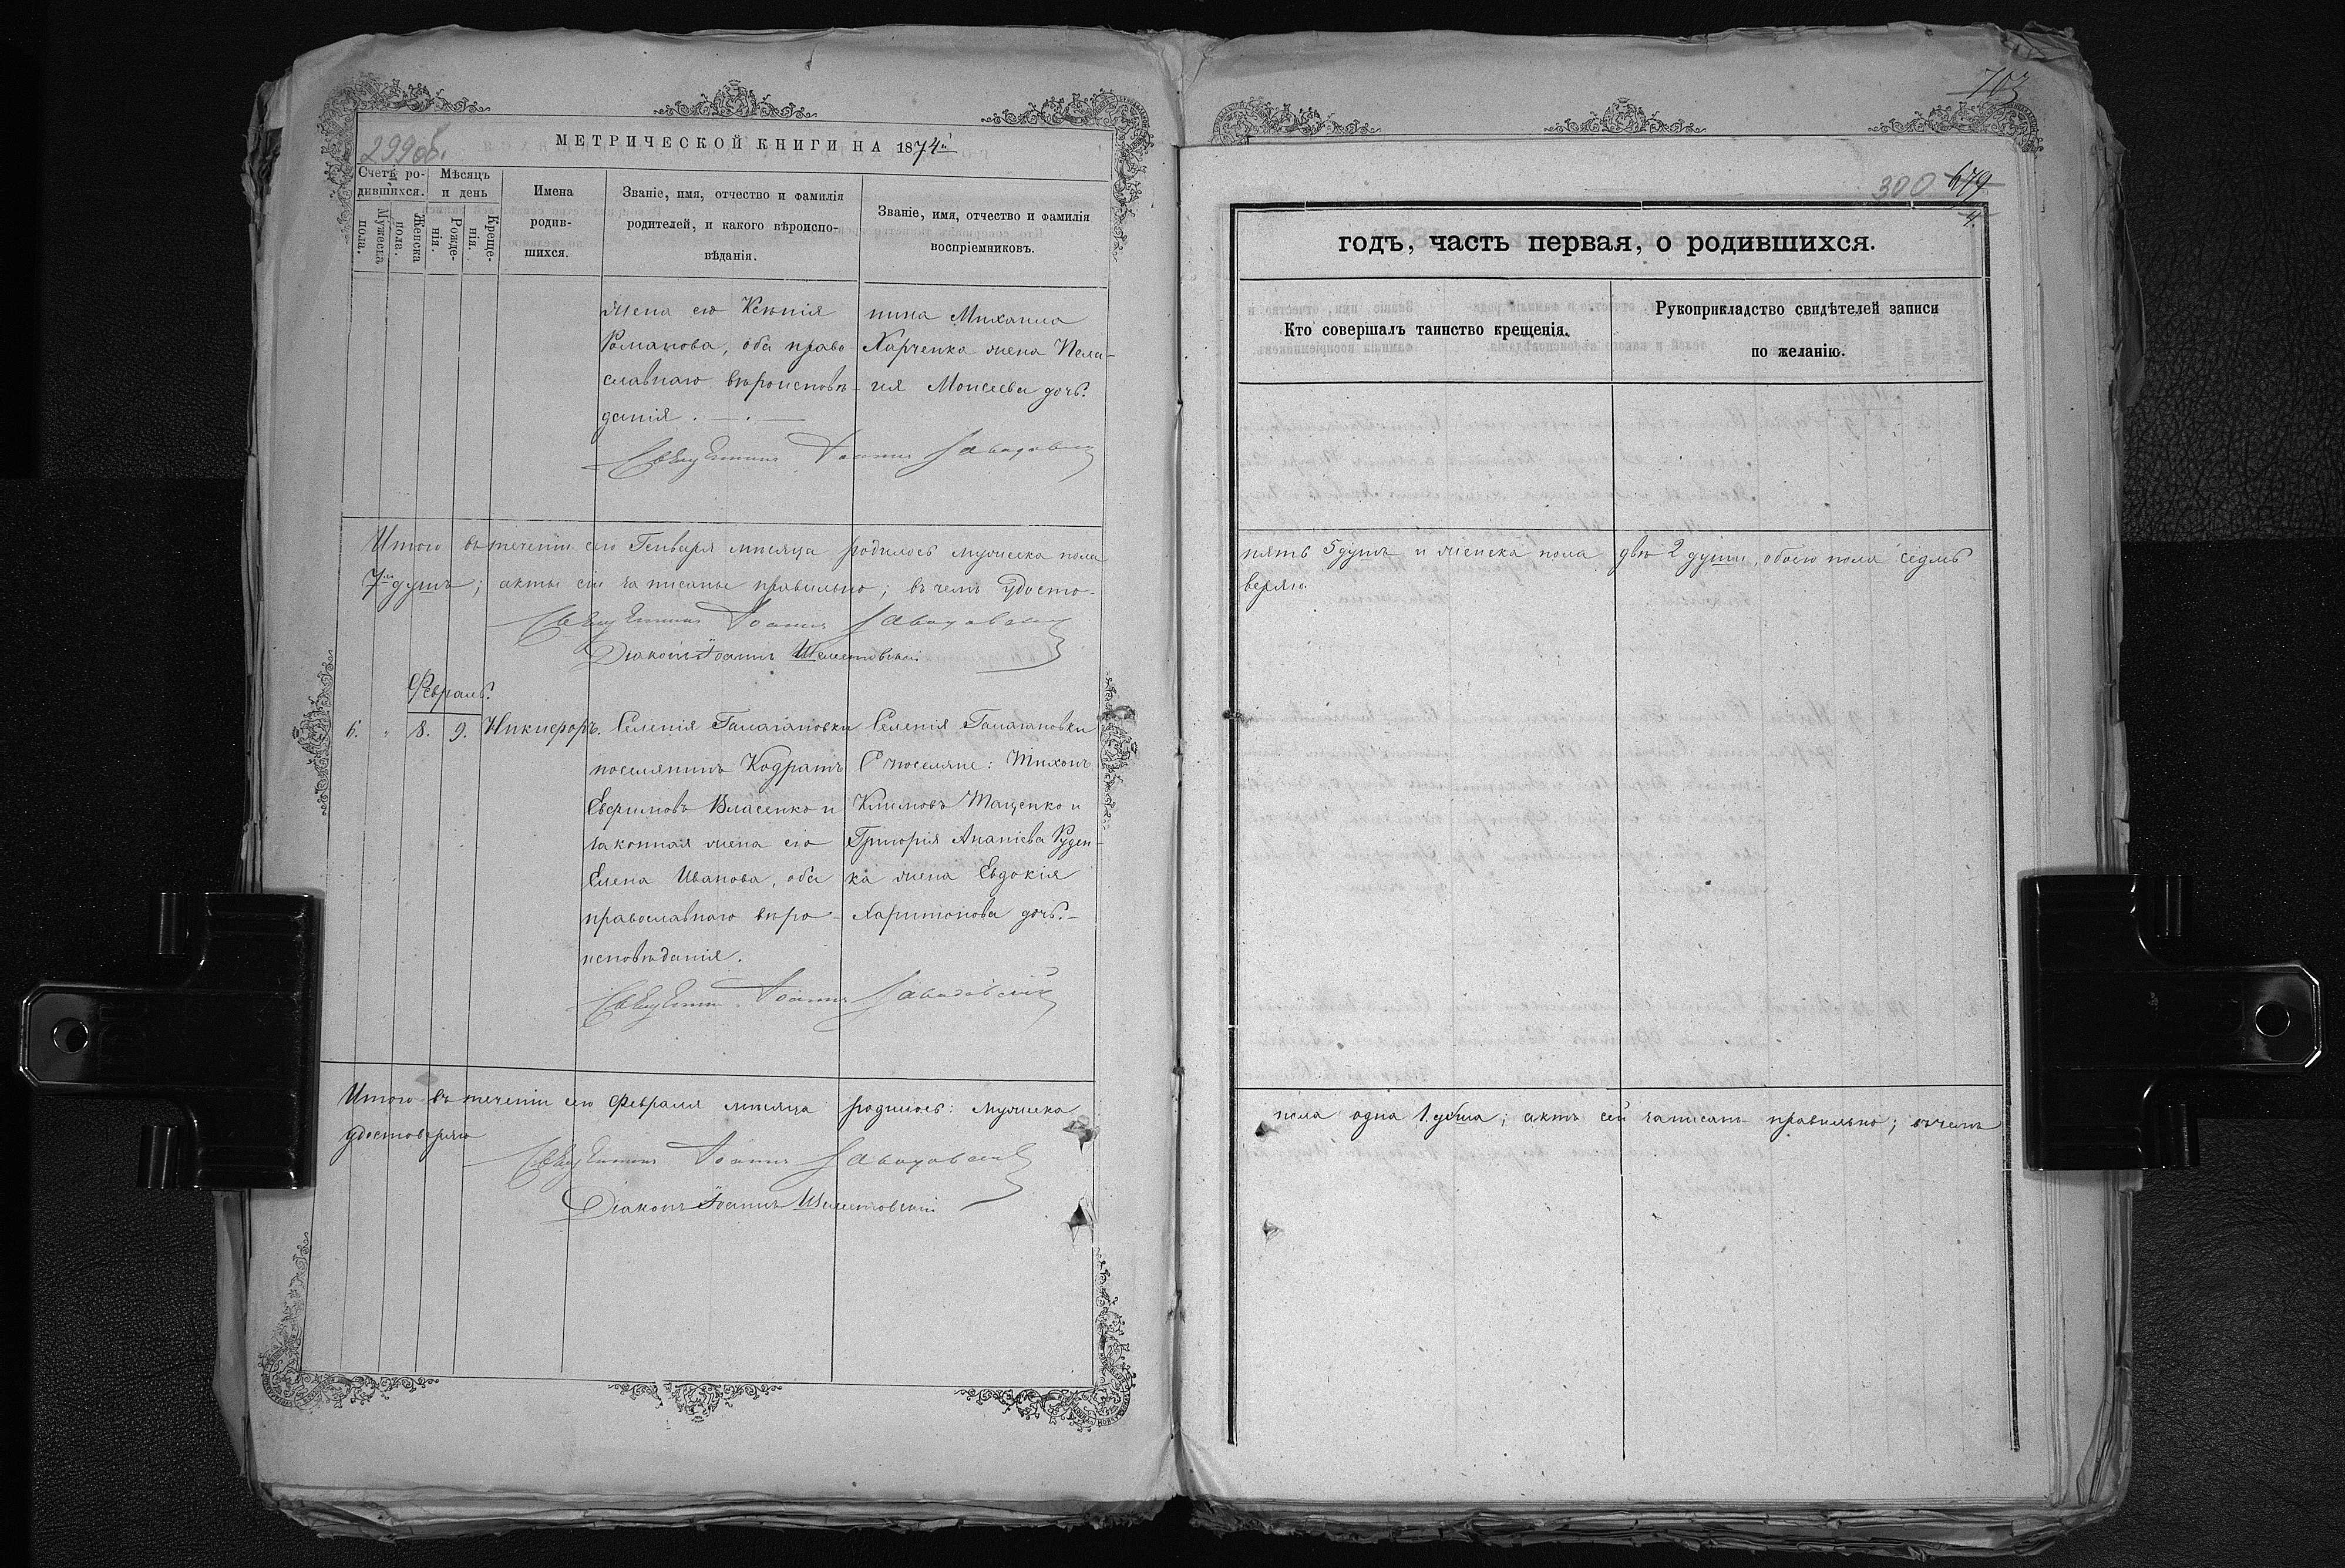 299об.
МЕТРИЧЕСКОЙ КНИГИ НА 1874й
Счетъ ро-
дившихся.
Мужеска
пола.
Женска
пола.
Мѣсяцъ
и день
Рожде-
нія.
Креще-
нія.
Имена
родив-
шихся.
Званіе, имя, отчество и фамилія
родителей, и какого вѣроиспо-
вѣданія.
Званіе, имя, отчество и фамилія
воспріемниковъ.
жена его Ксенія
Романова, оба право-
славнаго вѣроисповѣ-
данія.
нина Михаила
Харченка жена Пела-
гея Моисеева дочь.
Священникъ Іоаннъ Завадовскій
Итого въ теченіи сего Генваря мѣсяца родилось мужеска пола
7 душъ; акты сіи записаны правильно; въ чемъ удосто-
Священникъ Іоаннъ Завадовскій
Діаконъ Іоаннъ Шелестовскій
Февраль.
6. " 8. 9. Никифоръ.
Селенія Галагановки
поселянинъ Кодратъ
Евфимовъ Власенко и
законная жена его
Елена Иванова, оба
православнаго вѣро-
исповѣданія.
Селенія Галагановки
поселяне: Тихонъ
Климовъ Тащенко и
Григорія Ананіева Руден-
ка жена Евдокія
Харитонова дочь.
Священникъ Іоаннъ Завадовскій
Итого въ теченіи сего Февраля мѣсяца родилось: мужеска
удостовѣряю
Священникъ Іоаннъ Завадовскій
Діаконъ Іоаннъ Шелестовскій
703
300 679
4.
годъ, часть первая, о родившихся.
Кто совершалъ таинство крещенія.
Рукоприкладство свидѣтелей записи
по желанію.
пять 5 душъ и женска пола двѣ 2 души, обоего пола седмь
веряю
пола одна 1 душа; актъ сей записанъ правильно; въ чемъ